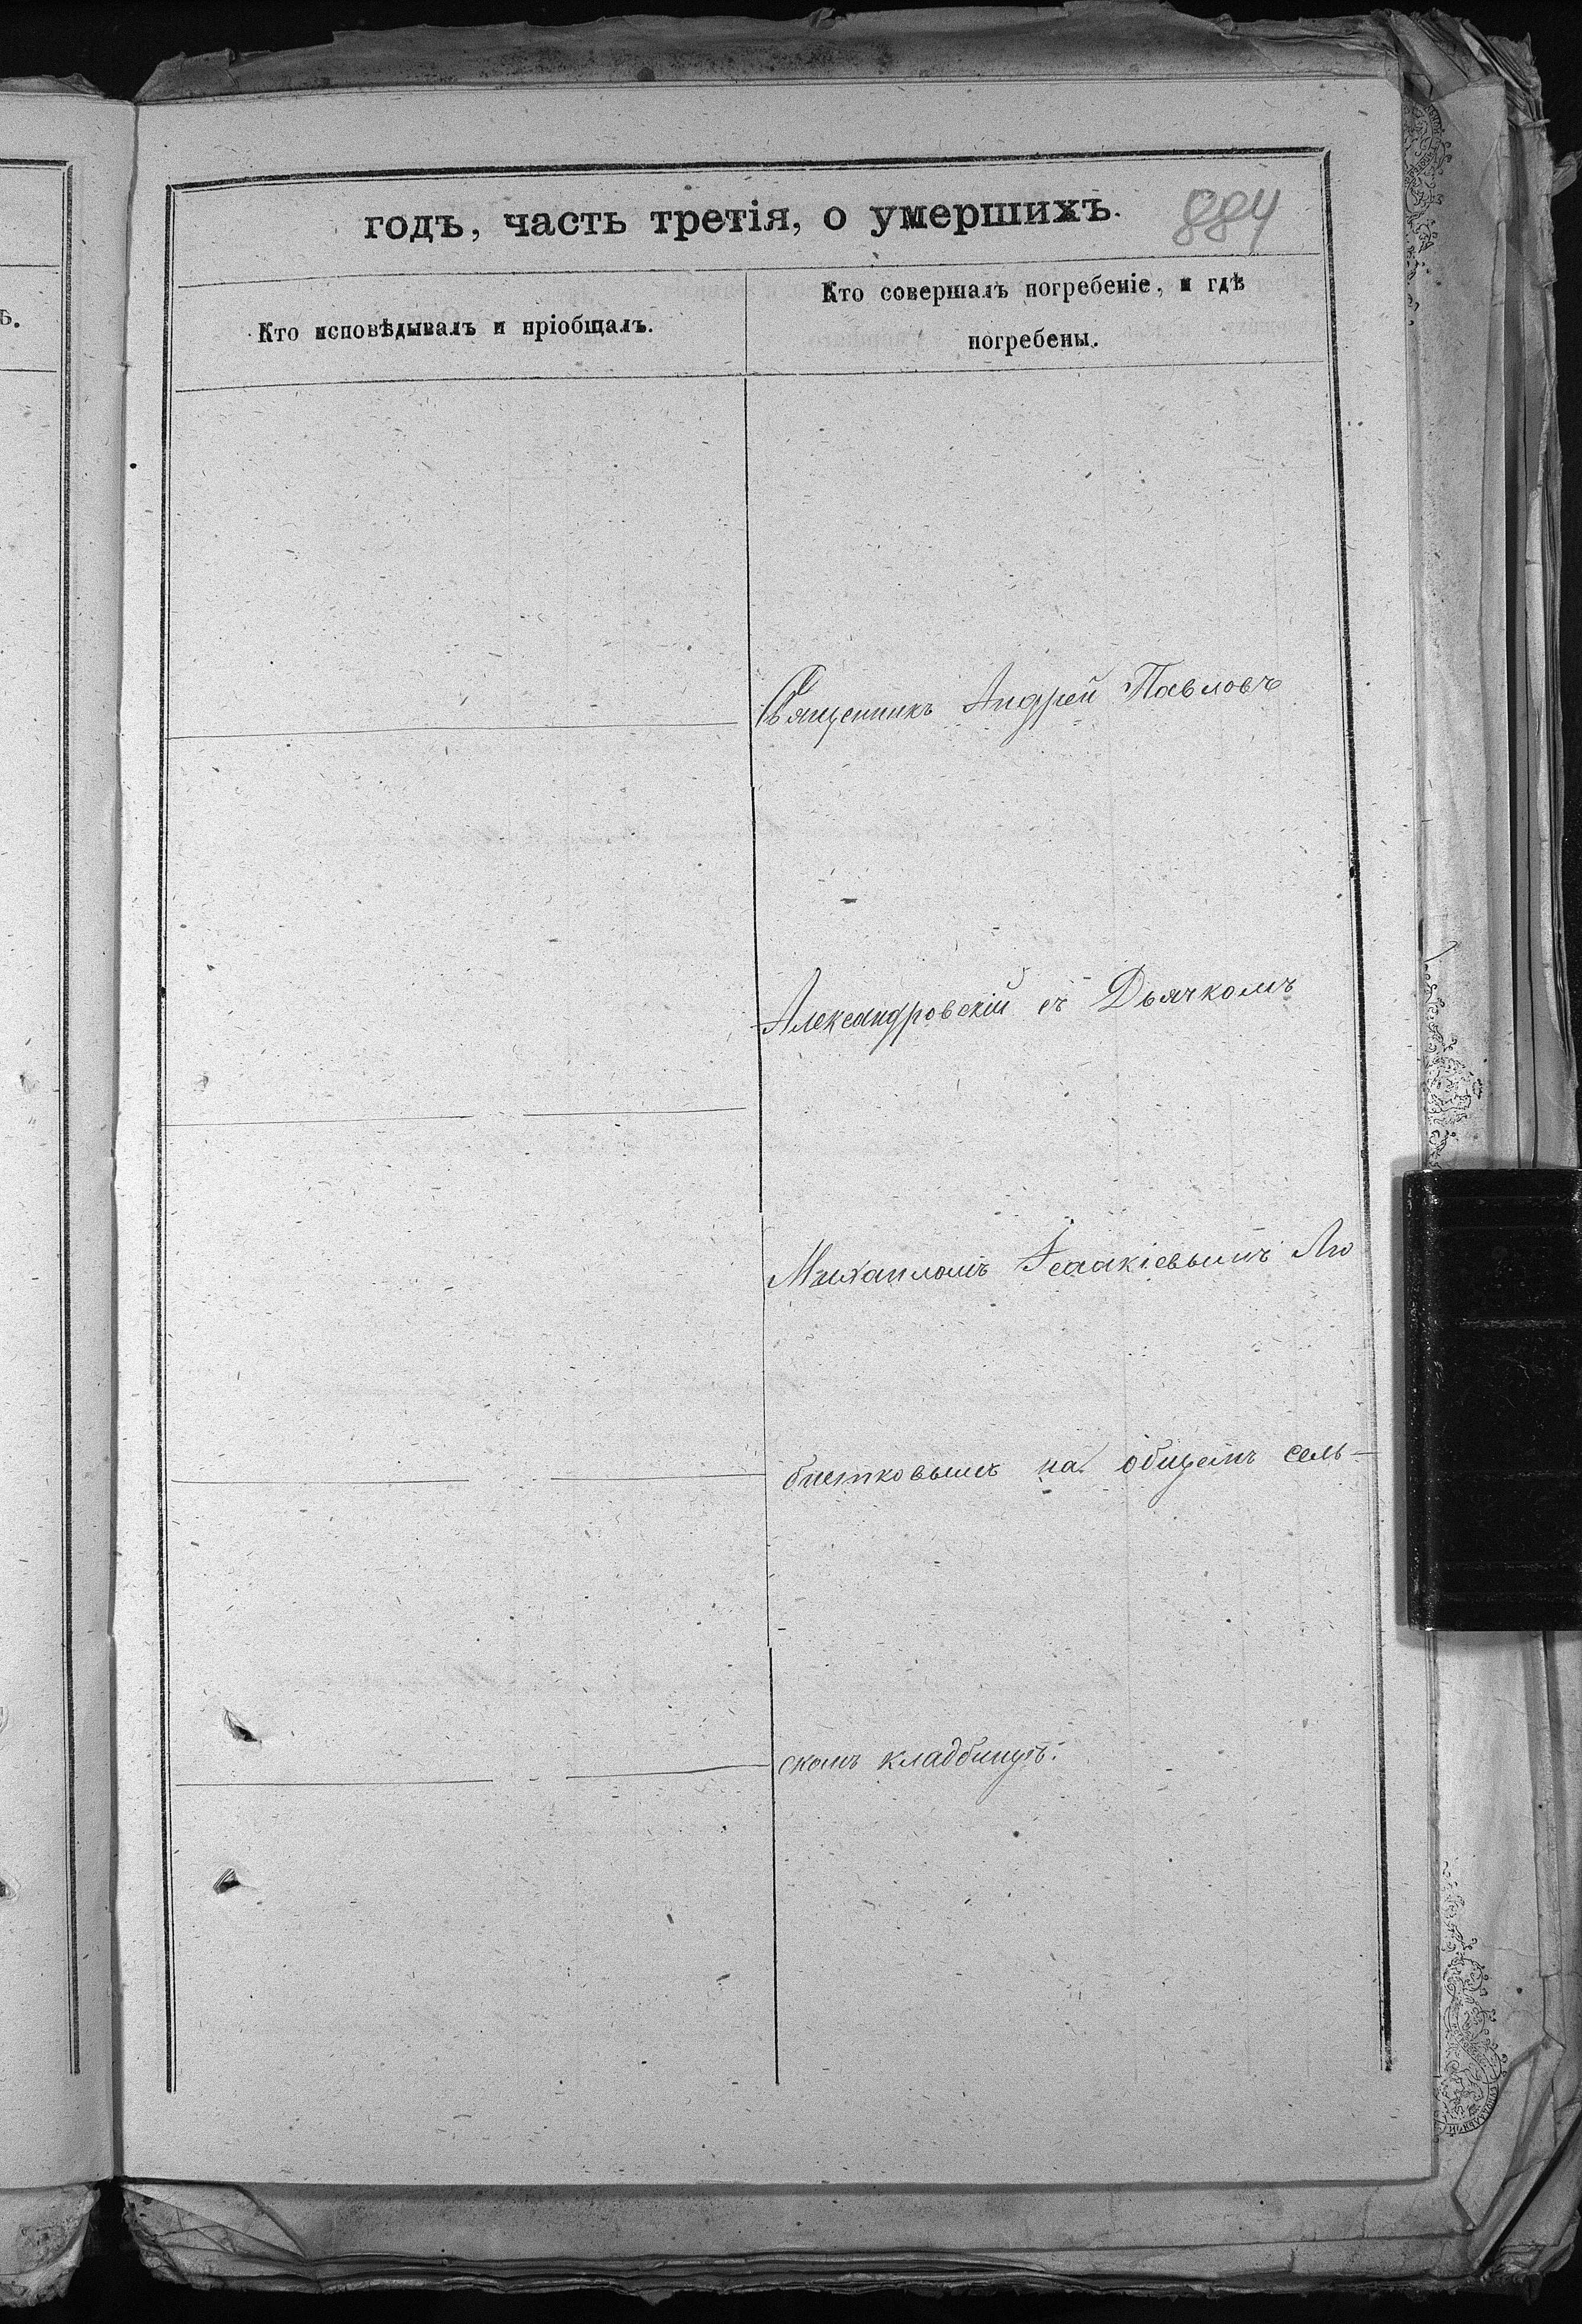 годъ, часть третія, о умершихъ.
884
Кто исповѣдывалъ и пріобщалъ.
Кто совершалъ погребеніе, и гдѣ
погребены.
Священникъ Андрей Павловъ
Александровскій съ Дьячкомъ
Михаиломъ Ісаакіевымъ Лю
бистковымъ на общемъ сель-
скомъ кладбищѣ.